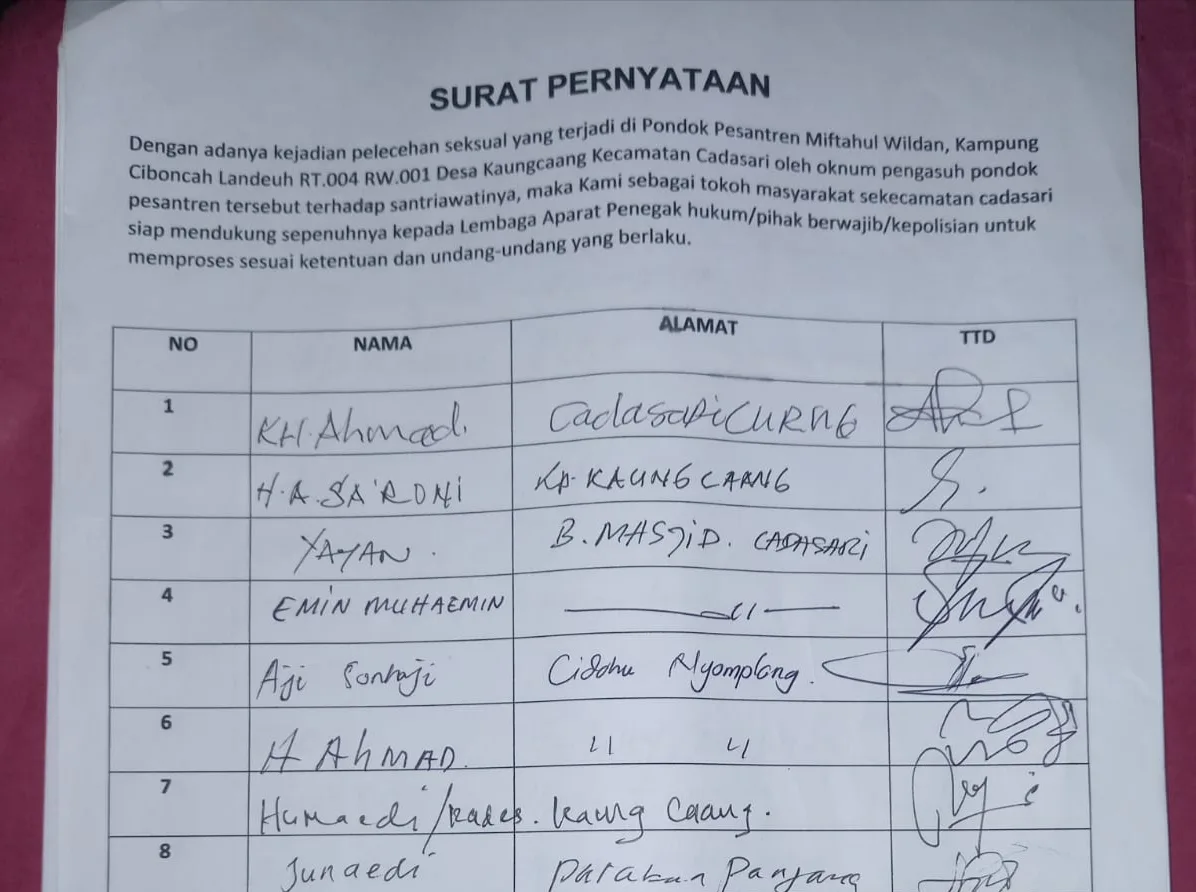 SURAT PERNYATAAN
Dengan adanya kejadian pelecehan seksual yang terjadi di Pondok Pesantren Miftahul Wildan, Kampung
Ciboncah Landeuh RT.004 RW.001 Desa Kaungcaang Kecamatan Cadasari oleh oknum pengasuh pondok
pesantren tersebut terhadap santriawatinya, maka Kami sebagai tokoh masyarakat sekecamatan cadasari
siap mendukung sepenuhnya kepada Lembaga Aparat Penegak hukum/pihak berwajib/kepolisian untuk
memproses sesuai ketentuan dan undang-undang yang berlaku.
NO NAMA ALAMAT TTD
1 KH. Ahmad. Cadasari
2 H.A. SA'RONI KP. KAUNG CAANG
3 YAYAN. B. MASJID. CADASARI
4 EMIN MUHAEMIN 〃
5 Aji Nyomplong.
6 H AHMAD. 〃 〃
7 Humaedi/kades. kaung Caang.
8 Junaedi Parakan Panjang